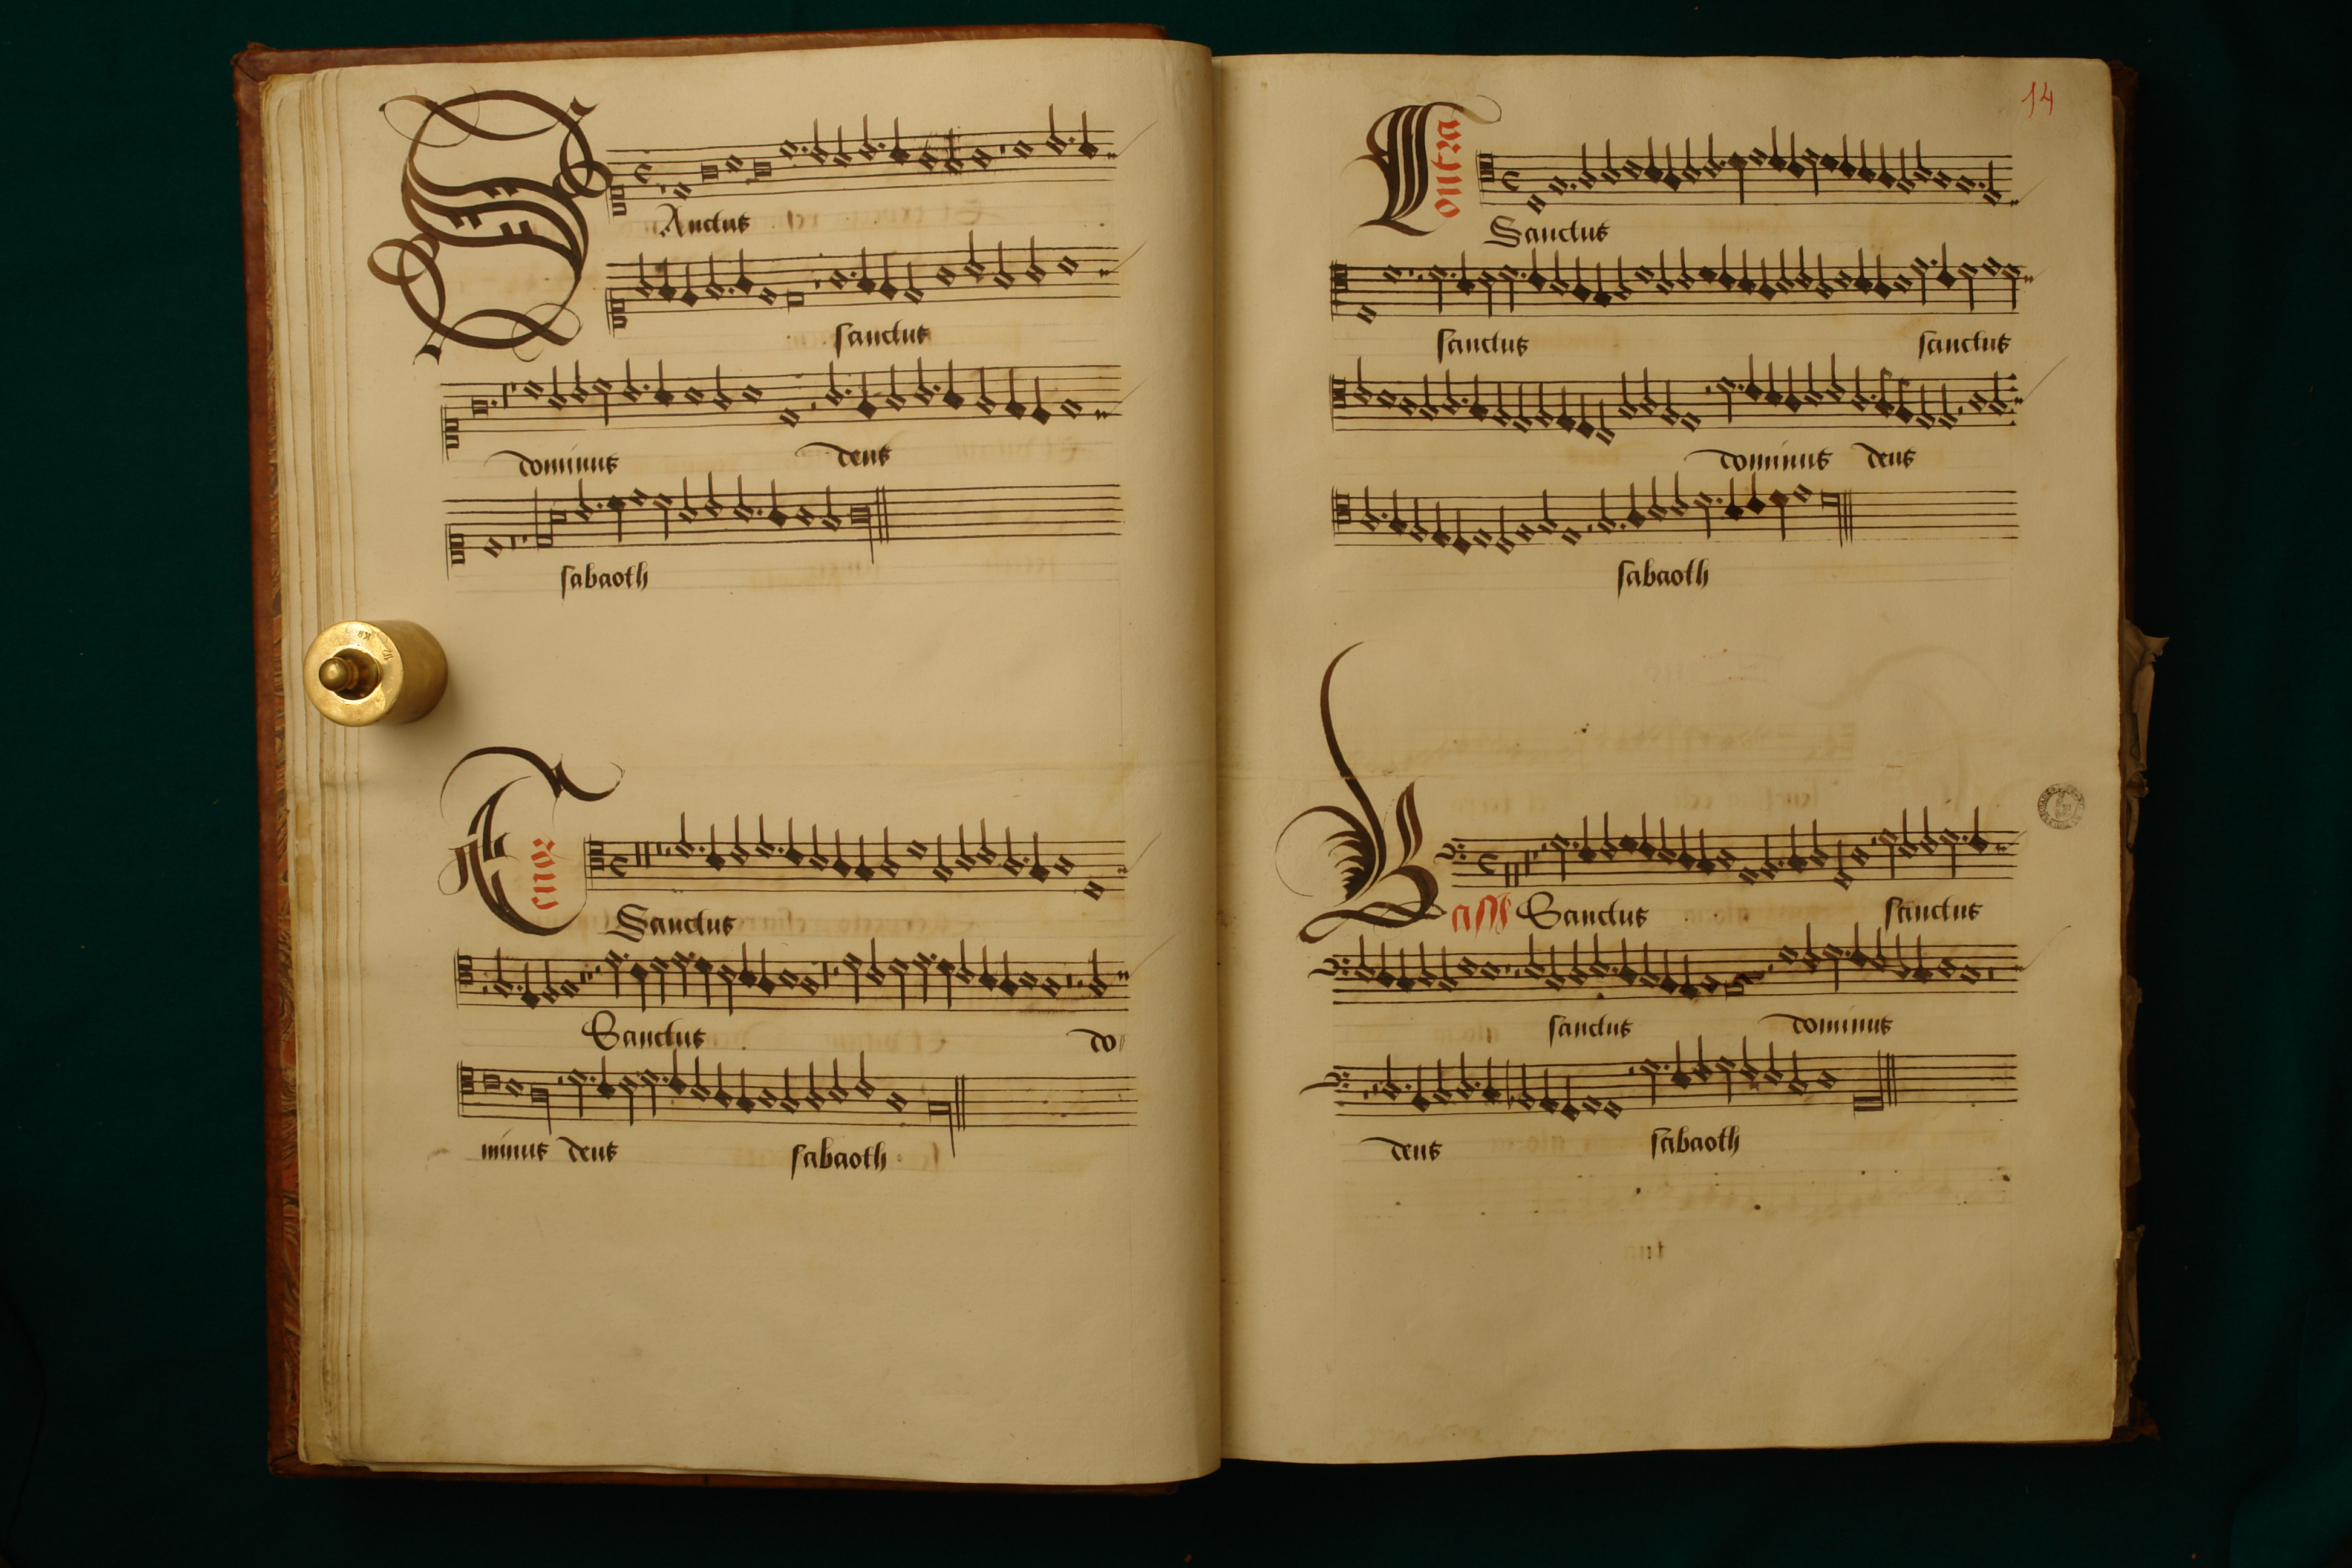 SAnctus
sanctus
dominus deus
sabaoth
Tenor
Sanctus
Sanctus do
minus deus sabaoth
14
Contra
Sanctus
sanctus sanctus
dominus deus
sabaoth
Bass Sanctus sanctus
sanctus dominus
deus sabaoth